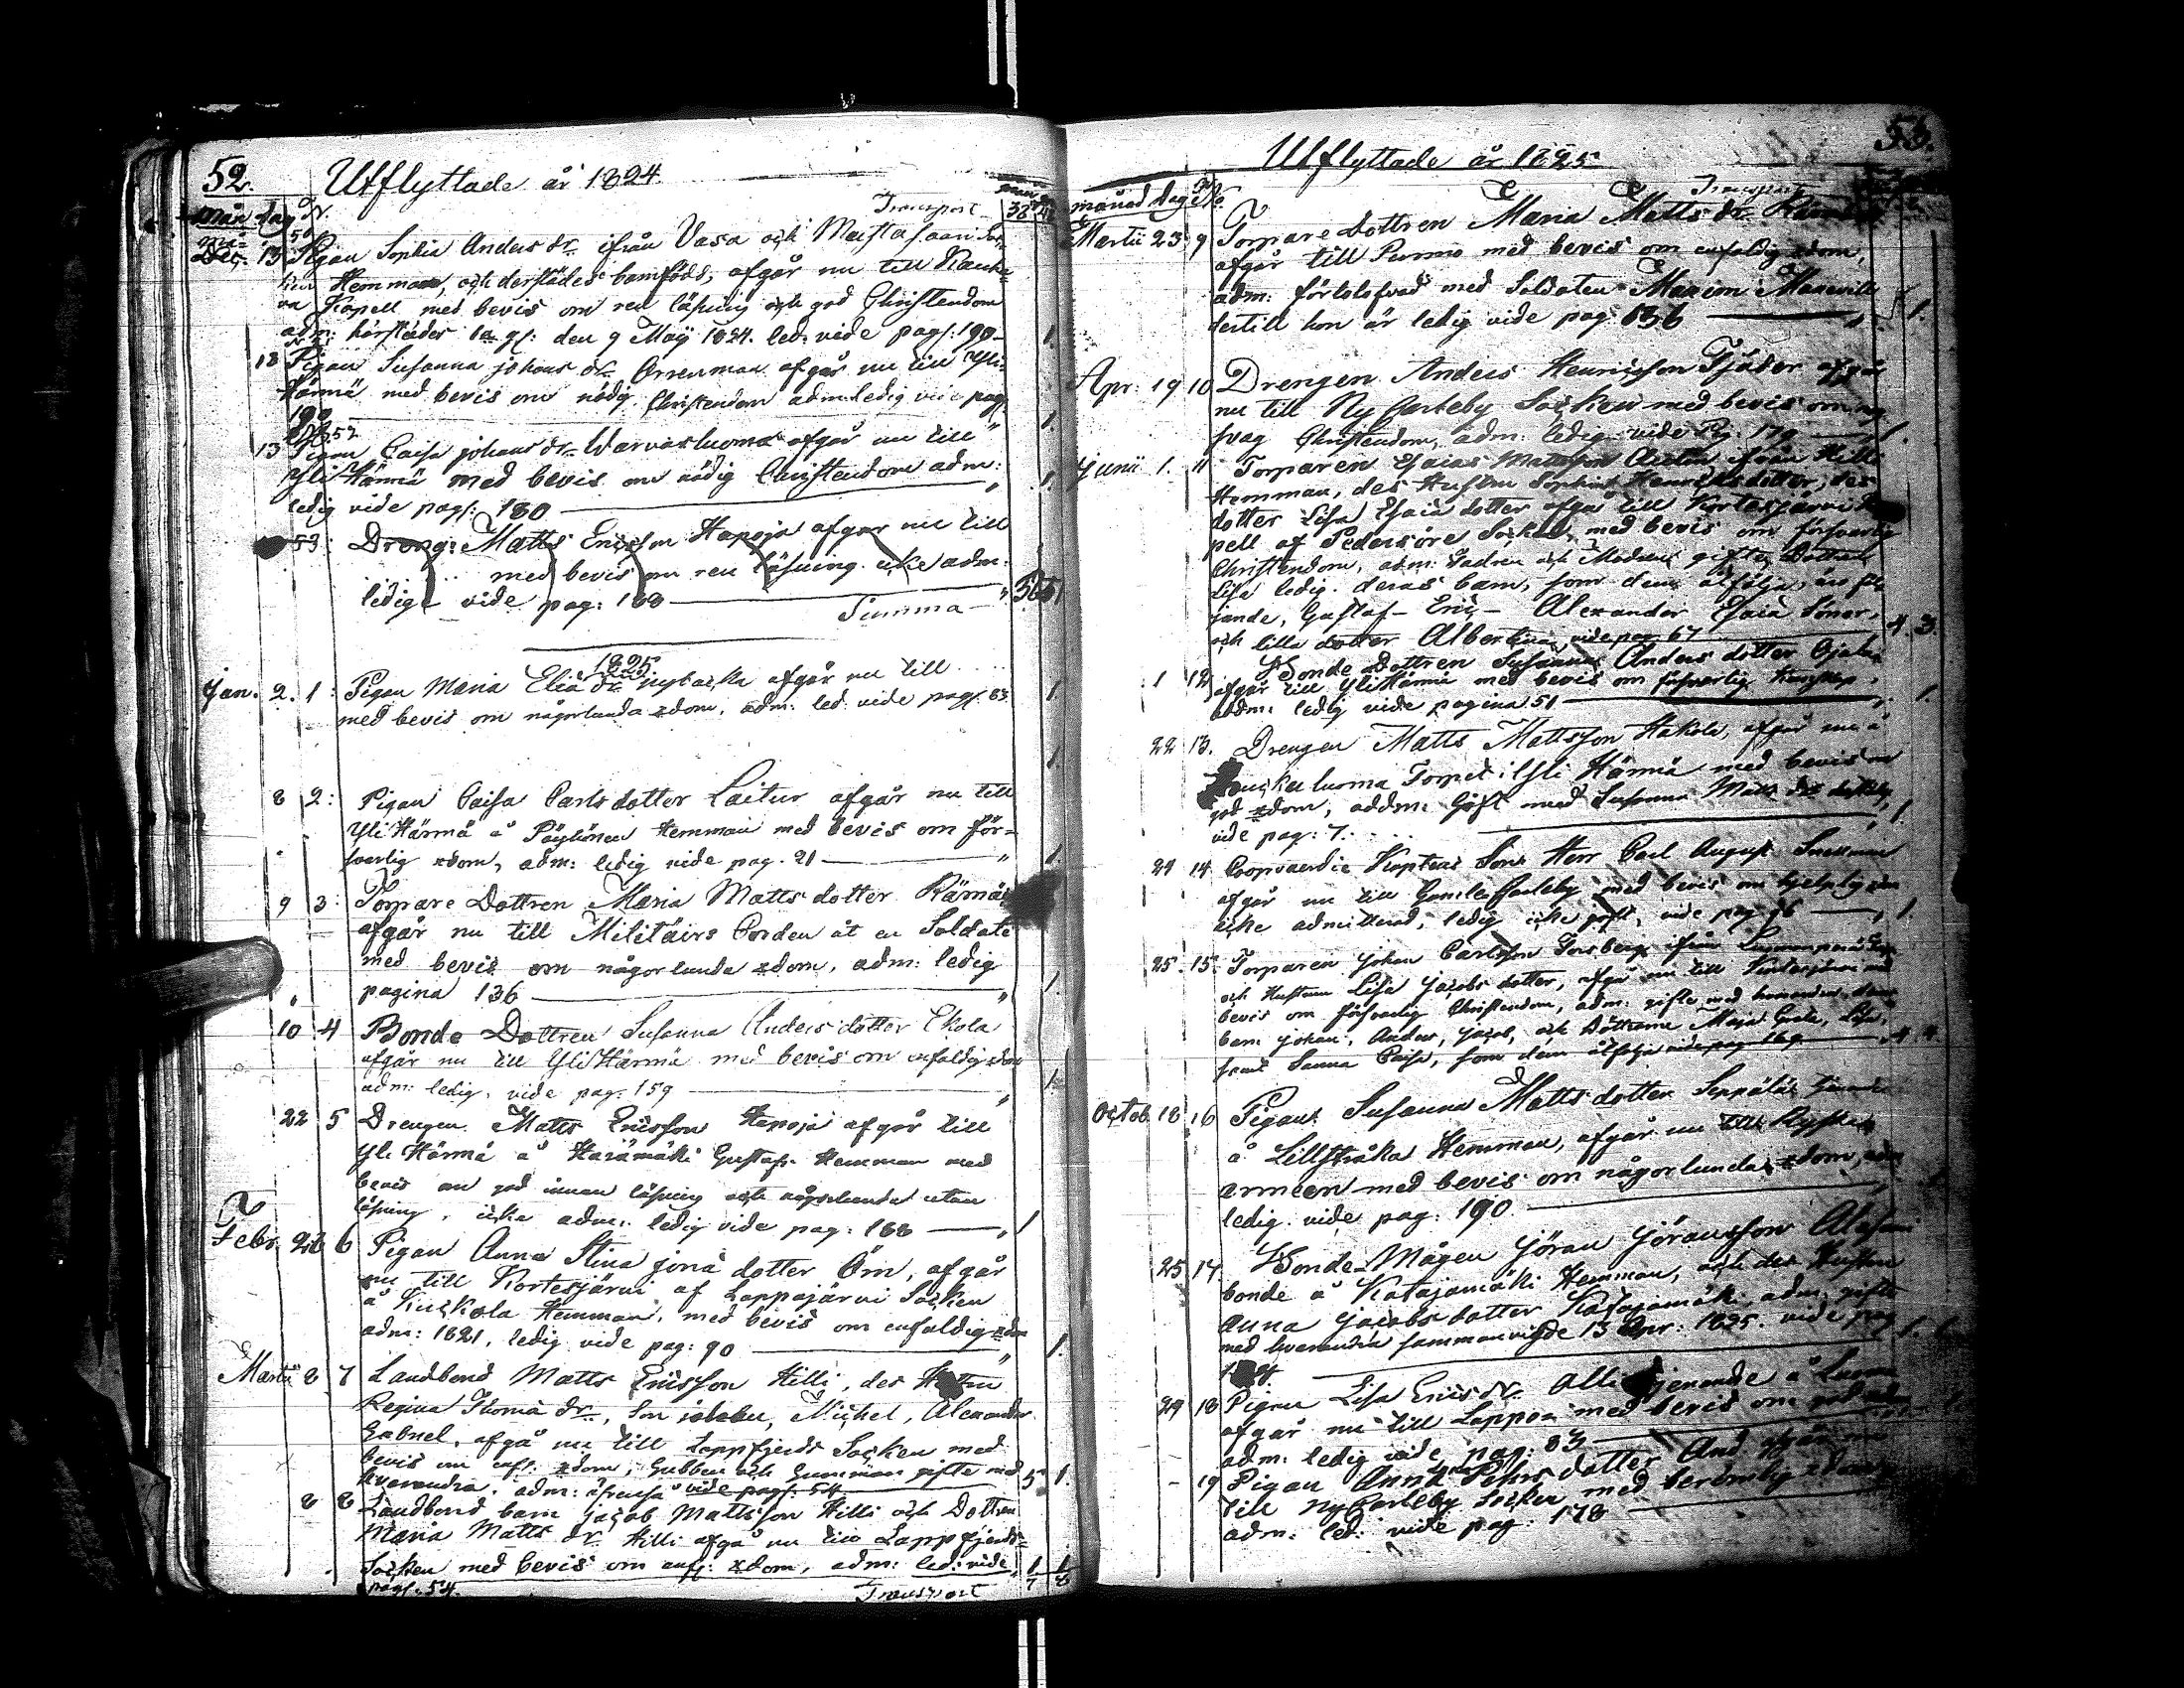 52.
Utflyttade år 1824.
Transport
Dec: 13 50 Pigan Sophia Anders dr. ifrån Vasa och
Hemman, och derstädes barnfödd, afgår nu till Kauha-
va Kapell med bevis om ren läsning och god Christendom
adm: härstädes 1a g: den 9 Maij 1824. led: vide pag: 190 1.
18 Pigan Susanna johans dr. afgår nu till Yli-
Härmä med bevis om nödig Christendom adm: ledig vide pag:
190 1.
13 52 Pigan Caisa johans dr. Warvasluoma afgår nu till
Yli Härmä med bevis om nödig Christendom adm:
ledig vide pag: 180 1.
53: Dreng: Matts Ericsson Hapoja afgår nu till
med bevis om ren läsning icke adm:
ledig vide pag: 188
Summa
1825.
Jan. 2. 1: Pigan Maria Eliæ dr. Nybacka afgår nu till
med bevis om någorlunda xdom. adm: led. vide pag: 83 1.
8 2: Pigan Caisa Carls dotter Laitur afgår nu till
Yli Härmä å Hemman med bevis om för-
svarlig xdom, adm: ledig vide pag. 21 1.
9 3: Torpare Dottren Maria Matts dotter
afgår nu till Militairs Corden åt en Soldate
med bevis om någorlunda xdom, adm: ledig
pagina 136 1.
10 4 Bonde Dottren Susanna Anders dotter Ekola
afgår nu till Yli Härmä med bevis om enfaldig xdom
adm: ledig, vide pag: 159 1.
22 5 Drengen Matts Ericsson Hapoja afgår till
Yli Härmä å Gustafs Hemman med
bevis om god innan läsning och någorlunda utan
läsning, icke adm: ledig vide pag: 188 1
Febr. 26 6 Pigan Anna Stina jona dotter Örn, afgår
nu till Kortesjärvi af Lappajärvi Socken
å Hemman, med bevis om enfaldig xdom
adm: 1821, ledig vide pag: 90 1.
Martii 8 7 Landbond Matts Ericsson Hilli, des Hustru
Regina Thomæ dr., Son Michel, Alexander
Gabriel, afgå nu till Lappfjerds Socken med
bevis om enf: xdom, Gubben och Gumman gifta med
hvarandra, adm: vide pag: 54 5 1.
8 8 Landbond barn jacob Mattsson Hilli och Dottren
Maria Matts dr. Hilli afgå nu till Lappfjerds
Socken med bevis om enf: xdom, adm: led: vide 1 1
pag: 54. 7 8
Transport
53.
Utflyttade år 1825
månad dag No.
Transport
Martii 23 9 Torpare Dottren Maria Matts dr.
afgår till Purmo med bevis om enfaldig xdom,
adm: förlofvad med Soldaten
dertill hon är ledig vide pag: 136 1.
Apr: 19 10 Drengen Anders Henricsson Tjäder afgår
nu till Ny Carleby Socken med bevis om
svag Christendom, adm: ledig vide Pag: 179 1.
Junii 1. 11 Torparen Esaias Mattsson ifrån Hilli
Hemman, des Hustru Sophia Henriksdotter, des
dotter Lisa Esaiæ dotter afgå till Kortesjärvi Ka-
pell af Pedersöre Socken, med bevis om försvarlig
Christendom, adm: Fadren och Modren gifte, Dottren
Lisa ledig. deras barn, som dem åtfölja, äro föl-
jande, Gustaf - Eric - Alexander Esaiæ Söner,
och lilla dotter Albertina, vide pag. 67 4. 3.
1 12 Bonde Dottren Susanna Anders dotter
afgår till Yli Härmä med bevis om försvarlig kunskap,
adm: ledig vide pagina 51 1.
22 13. Drengen Matts Mattsson Hakola, afgår nu å
Torpet i Yli Härmä med bevis om
god xdom, adm: gift med Susanna Matts dr
vide pag: 7. 1.
24 14 Coopvaerdie Kaptens Son Herr Carl August Snellman
afgår nu till Gamla Carleby med bevis om hjelplig xdom
icke admitterad, ledig icke gift, vide pag 1.
25. 15. Torparen Johan Carlsson Forsberg ifrån
och Hustrun Lisa Jacobs dotter, afgå nu till Kortesjärvi med
bevis om försvarlig Christendom, adm: gifte med hvarandra, deras
barn Johan, Anders, Jacob, och Döttrarna Maja Greta, Lisa,
samt Sanna Caisa, som dem åtfölja vide pag 4. 4
Octob. 18 16 Pigan Susanna Matts dotter Seppälä tjenande
å Lillstråka Hemman, afgår nu till Ryska
armeen med bevis om någorlunda xdom, adm
ledig. vide pag: 190
25 17. Bonde Mågen Göran Göransson
bonde å Katajamäki Hemman, och des Hustru
Anna Jacobs dotter Katajamäki, adm: gifte
med hvarandra sammanvigde 13 Apr: 1825. vide pag 1. 1.
29 18 Pigan Lisa Erics dr. tjenande å
afgår nu till Lappo med bevis om god xdom
adm: ledig vide pag: 83
- 19 Pigan Anna Pehrs dotter And afgår nu
till Ny Carleby Socken med berömlig xdom
adm: led: vide pag: 178